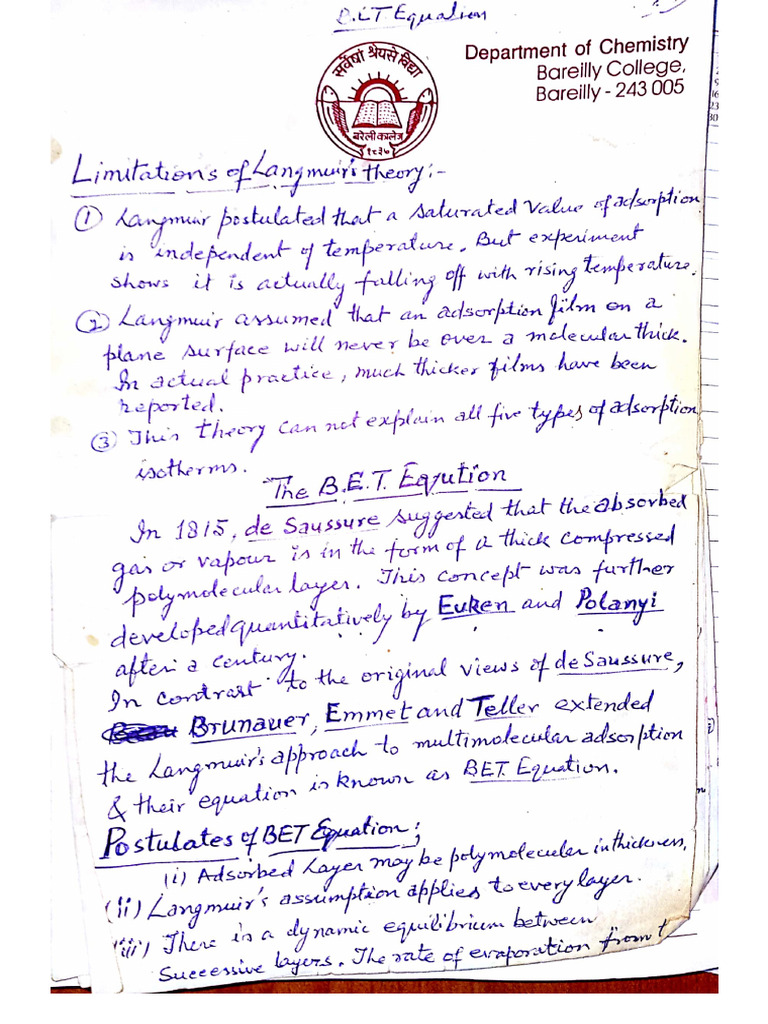 B.E.T Equation
सर्वेषां श्रेयसे विद्या
बरेली कालेज
१८३७
Department of Chemistry
Bareilly College,
Bareilly - 243 005
Limitations of Langmuir's theory:-
① Langmuir postulated that a saturated value of adsorption
is independent of temperature. But experiment
shows it is actually falling off with rising temperature.
② Langmuir assumed that an adsorption film on a
plane surface will never be over a molecular thick.
In actual practice, much thicker films have been
reported.
③ This theory can not explain all five types of adsorption
isotherms.
The B.E.T. Eqution
In 1815, de Saussure suggested that the absorbed
gas or vapour is in the form of a thick compressed
polymolecular layer. This concept was further
developed quantitatively by Euken and Polanyi
after a century.
In contrast to the original views of de Saussure,
Brunauer, Emmet and Teller extended
the Langmuir's approach to multimolecular adsorption
& their equation is known as BET Equation.
Postulates of BET Equation;
(i) Adsorbed Layer may be polymolecular in thickness.
(ii) Langmuir's assumption applies to every layer.
(iii) There is a dynamic equilibrium between
Successive layers. The rate of evaporation from